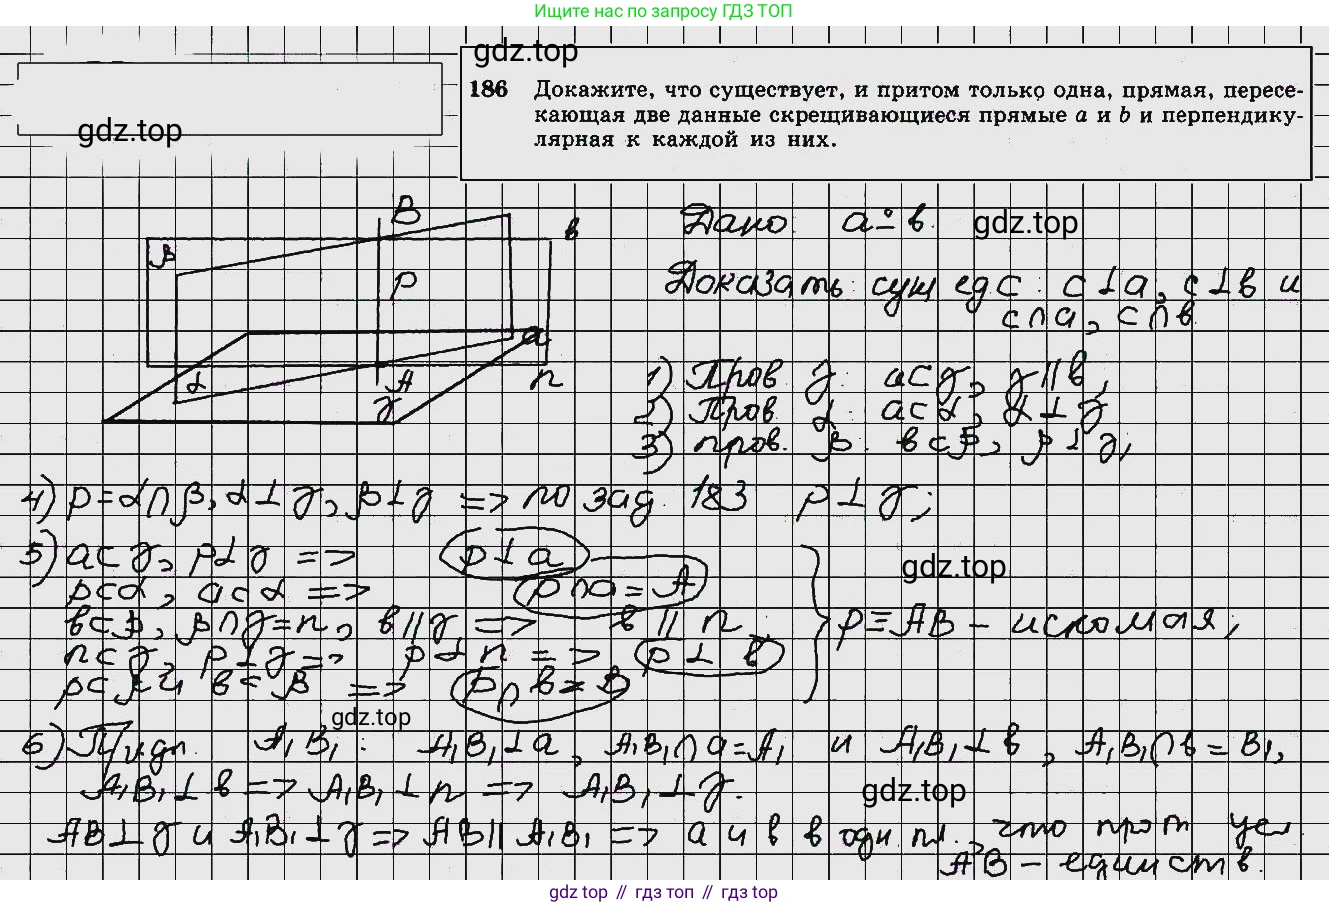 Ищите нас по запросу ГДЗ ТОП
gdz.top
186 Докажите, что существует, и притом только одна, прямая, пересе-
кающая две данные скрещивающиеся прямые a и b и перпендику-
лярная к каждой из них.
gdz.top
B
в
β
p
a
α
A
n
γ
Дано: a ∸ в.
gdz.top
Доказать: сущ ед c: c⊥a, c⊥в и
c∩a, c∩в
1) Пров γ: a⊂γ, γ∥в,
2) Пров α: a⊂α, α⊥γ
3) пров. β: в⊂β, β⊥γ,
4) p=α∩β, α⊥γ, β⊥γ => по зад. 183 p⊥γ;
5) a⊂γ, p⊥γ => p⊥a
p⊂α, a⊂α => p∩a=A
gdz.top
в⊂β, β∩γ=n, в∥γ, => в∥n
p≡AB - искомая,
n⊂γ, p⊥γ => p⊥n => p⊥в
p⊂β и в⊂β => p∩в=B
gdz.top
6) A₁B₁: A₁B₁⊥a, A₁B₁∩a=A₁ и A₁B₁⊥в, A₁B₁∩в=B₁,
A₁B₁⊥в => A₁B₁⊥n => A₁B₁⊥γ.
gdz.top
AB⊥γ и A₁B₁⊥γ => AB∥A₁B₁ => a и в в одн пл. что прот усл
AB - единств.
gdz top // гдз топ // gdz top